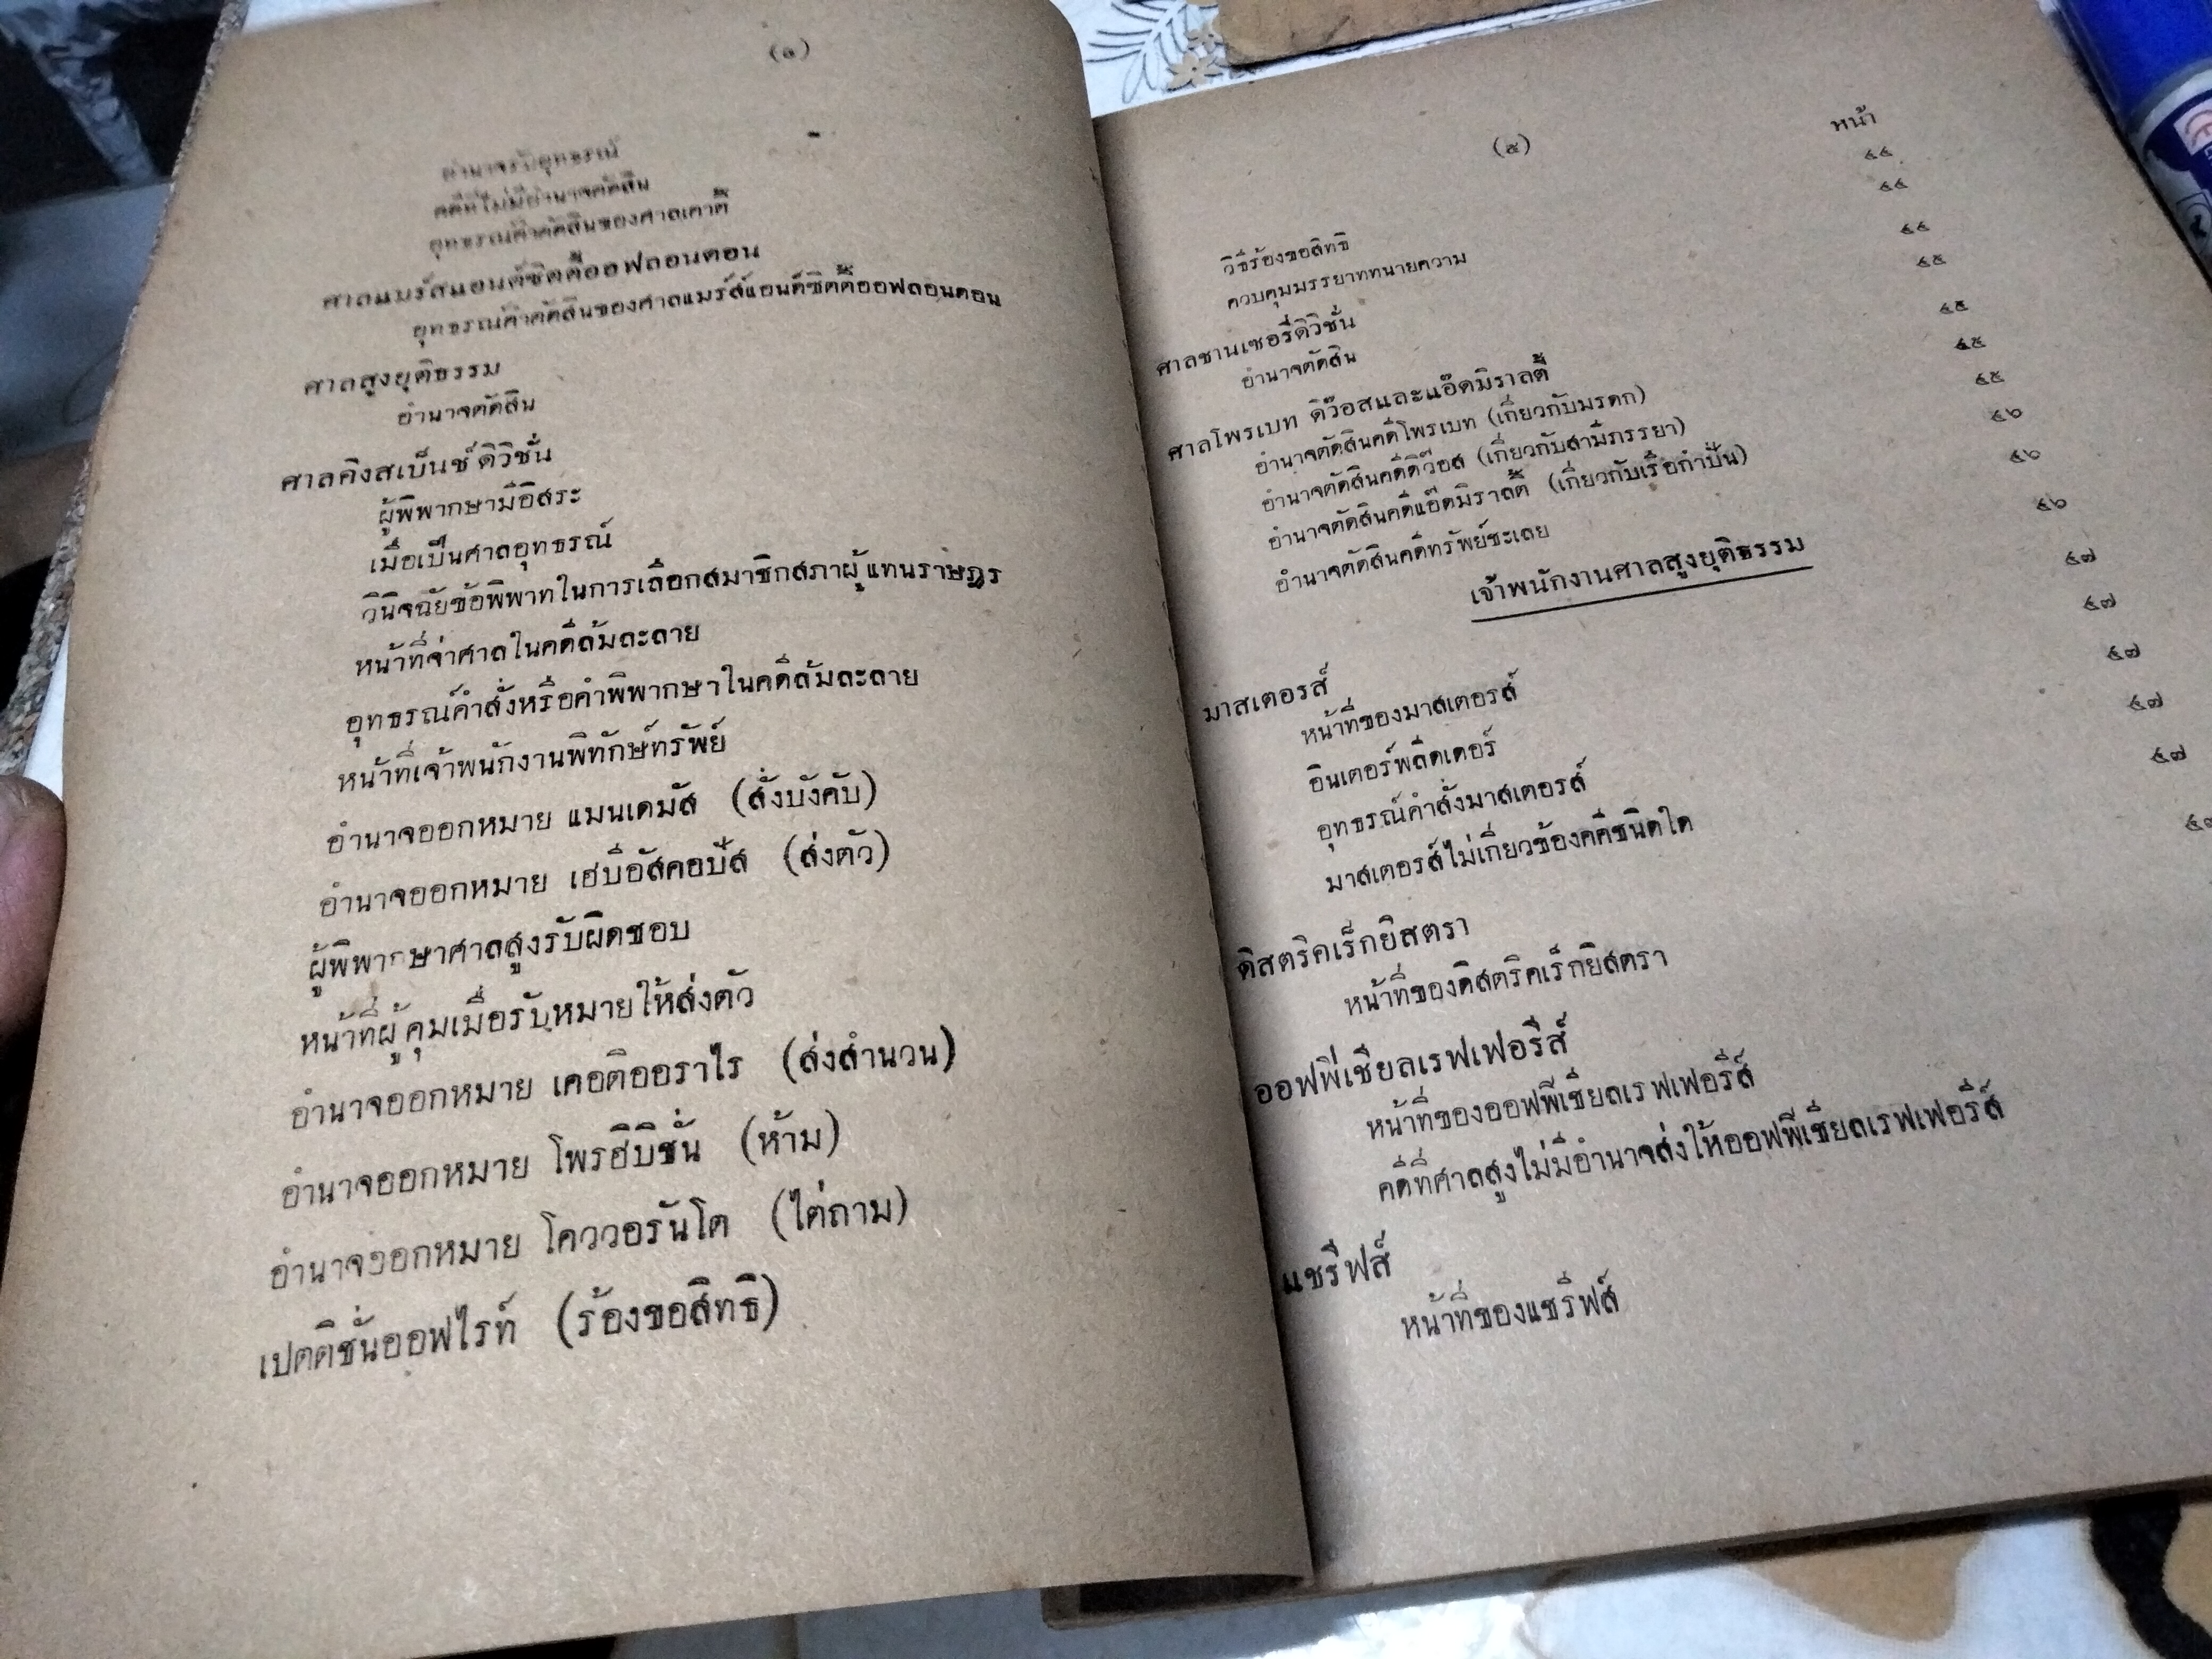 (๑)
อำนาจรับอุทธรณ์
คดีที่ไม่มีอำนาจตัดสิน
อุทธรณ์คำตัดสินของศาลเคาตี้
ศาลแมร์ส์แอนด์ซิตตี้ออฟลอนดอน
อุทธรณ์คำตัดสินของศาลแมร์ส์แอนด์ซิตตี้ออฟลอนดอน
ศาลสูงยุติธรรม
อำนาจตัดสิน
ศาลคิงสเบ็นช์ดิวิชั่น
ผู้พิพากษามีอิสระ
เมื่อเป็นศาลอุทธรณ์
วินิจฉัยข้อพิพาทในการเลือกสมาชิกสภาผู้แทนราษฎร
หน้าที่จ่าศาลในคดีล้มละลาย
อุทธรณ์คำสั่งหรือคำพิพากษาในคดีล้มละลาย
หน้าที่เจ้าพนักงานพิทักษ์ทรัพย์
อำนาจออกหมาย แมนเดมัส (สั่งบังคับ)
อำนาจออกหมาย เฮบีอัสคอปัส (ส่งตัว)
ผู้พิพากษาศาลสูงรับผิดชอบ
หน้าที่ผู้คุมเมื่อรับหมายให้ส่งตัว
อำนาจออกหมาย เคอติออราไร (ส่งสำนวน)
อำนาจออกหมาย โพรฮิบิชั่น (ห้าม)
อำนาจออกหมาย โควอรันโต (ไต่ถาม)
เปตติชั่นออฟไรท์ (ร้องขอสิทธิ)
(๕)
หน้า
วิธีร้องขอสิทธิ ๔๔
ควบคุมมรรยาททนายความ ๔๔
ศาลชานเซอรี่ดิวิชั่น ๔๔
อำนาจตัดสิน ๔๕
ศาลโพรเบท ดิว๊อสและแอ๊ดมิราลตี้ ๔๕
อำนาจตัดสินคดีโพรเบท (เกี่ยวกับมรดก) ๔๕
อำนาจตัดสินคดีดิว๊อส (เกี่ยวกับสามีภรรยา) ๔๕
อำนาจตัดสินคดีแอ๊ดมิราลตี้ (เกี่ยวกับเรือกำปั่น) ๔๖
อำนาจตัดสินคดีทรัพย์ชะเลย ๔๖
เจ้าพนักงานศาลสูงยุติธรรม
มาสเตอรส์ ๔๖
หน้าที่ของมาสเตอรส์ ๔๗
อินเตอร์พลีดเดอร์ ๔๗
อุทธรณ์คำสั่งมาสเตอรส์ ๔๗
มาสเตอรส์ไม่เกี่ยวข้องคดีชนิดใด ๔๗
ดิสตริคเร็กยิสตรา ๔๗
หน้าที่ของดิสตริคเร็กยิสตรา
ออฟฟิเชียลเรฟเฟอรีส์
หน้าที่ของออฟฟิเชียลเรฟเฟอรีส์
คดีที่ศาลสูงไม่มีอำนาจส่งให้ออฟฟิเชียลเรฟเฟอรีส์
แชรีฟส์
หน้าที่ของแชรีฟส์